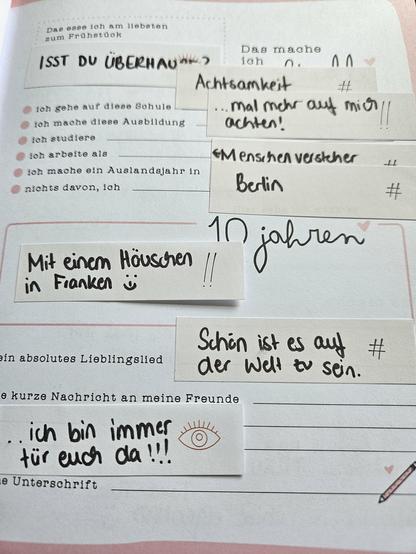 Das esse ich am liebsten
zum Frühstück
ISST DU ÜBERHAU
Das mache
ich
Achtsamkeit #
...mal mehr auf mich !!
achten!
ich gehe auf diese Schule
ich mache diese Ausbildung
ich studiere
ich arbeite als
Menschen versteher
ich mache ein Auslandsjahr in
Berlin #
nichts davon, ich
10 jahren
Mit einem Häuschen !!
in Franken
Schön ist es auf #
der Welt zu sein.
ein absolutes Lieblingslied
e kurze Nachricht an meine Freunde
..ich bin immer
für euch da!!!
e Unterschrift